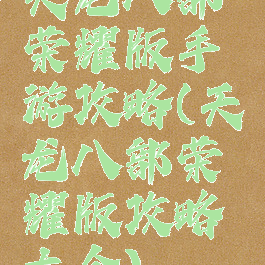 天龙八部
荣耀版手
游攻略(天
龙八部荣
耀版攻略
大全)